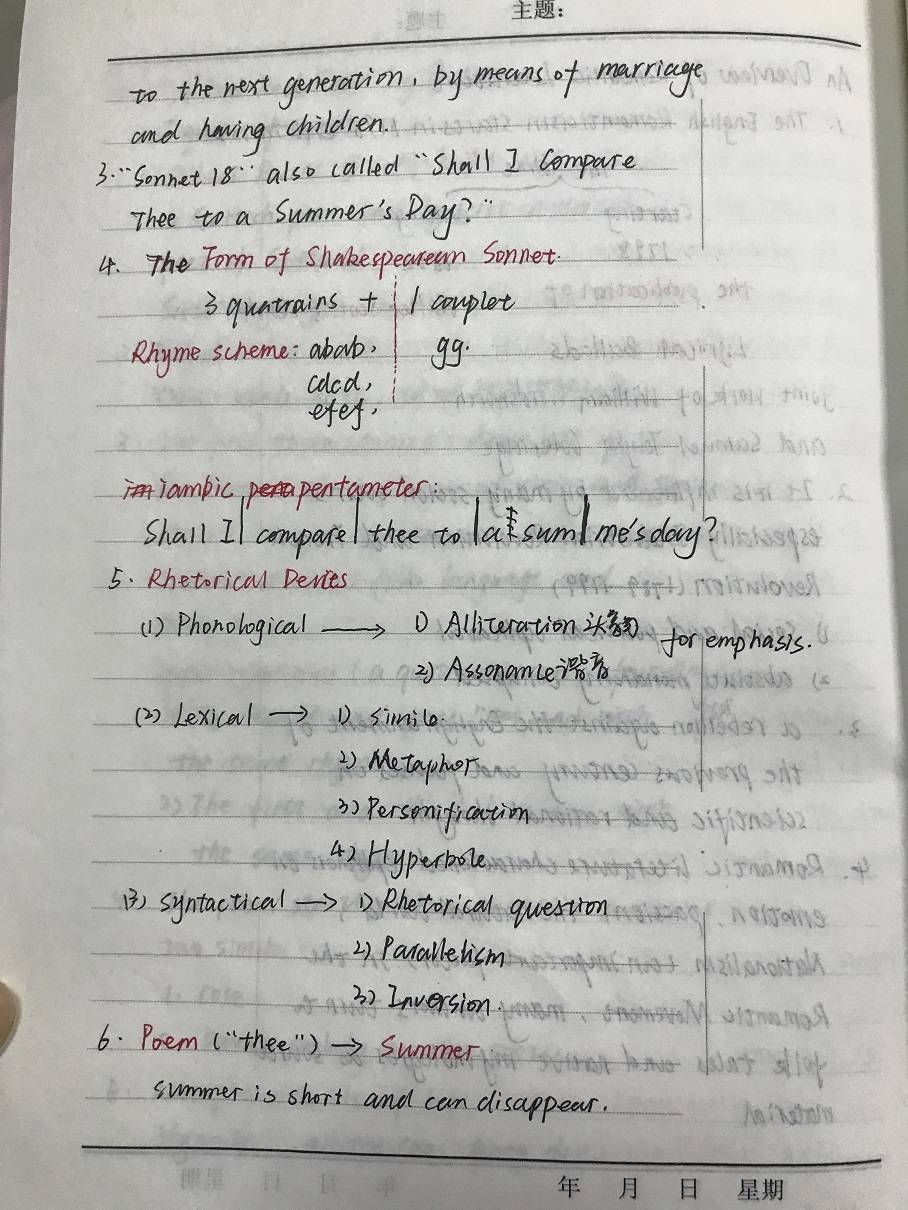 主题:
to the next generation, by means of marriage
and having children.
3. "Sonnet 18" also called "Shall I Compare
Thee to a Summer's Day?"
4. The Form of Shakespearean Sonnet.
3 quatrains + 1 couplet
Rhyme scheme: abab, gg.
cdcd,
efef,
iambic pentameter:
Shall I| compare| thee to |a sum| me's day?
5. Rhetorical Devies
(1) Phonological → 1) Alliteration 头韵 for emphasis.
2) Assonance 谐音
(2) Lexical → 1) simile.
2) Metaphor
3) Personification
4) Hyperbole
(3) Syntactical → 1) Rhetorical question
2) Parallelism
3) Inversion.
6. Poem ("thee") → Summer
summer is short and can disappear.
年 月 日 星期